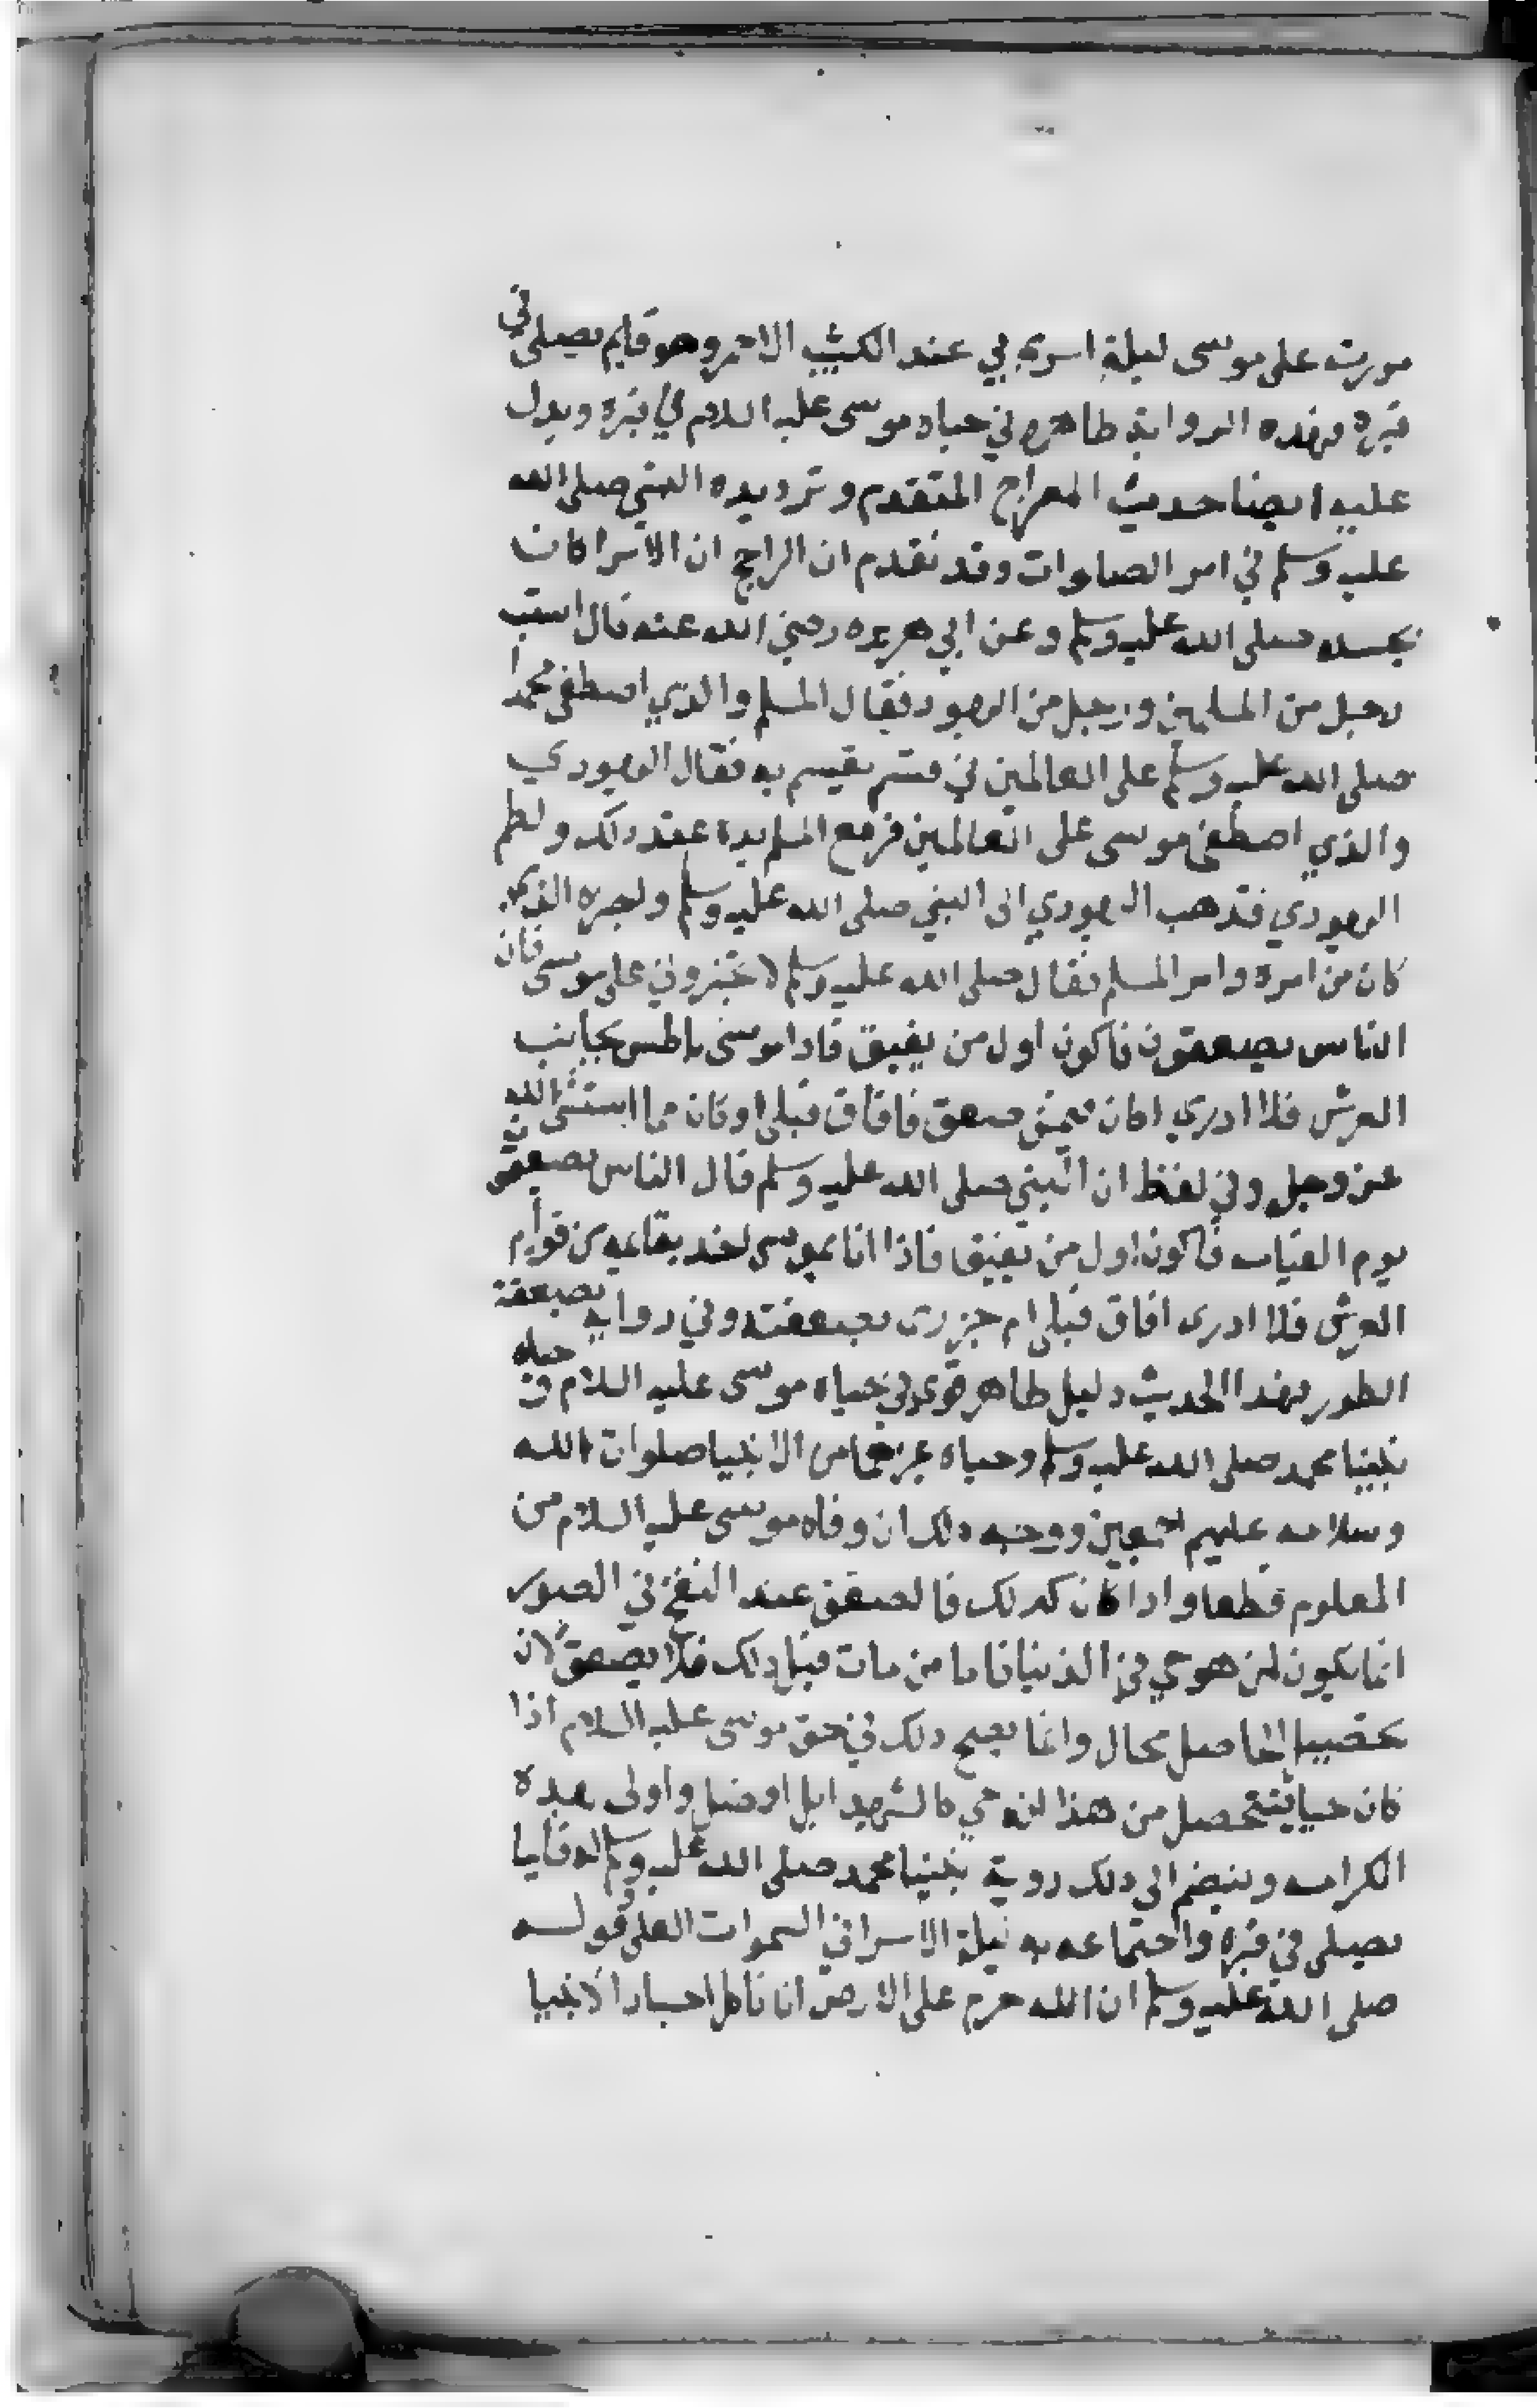 مررت على موسى ليلة اسري بي عند الكثيب الاحمر وهو قايم يصلى في
قبره فهذه الرواية ظاهره في حياه موسى عليه السلام في قبره ويدل
عليه ايضا حديث المعراج المتقدم وترديده النبي صلى الله
عليه وسلم في امر الصلوات وقد تقدم ان الراجح ان الاسرا كان
بجسده صلى الله عليه وسلم وعن ابي هريره رضي الله عنه قال استب
رجل من المسلمين ورجل من اليهود فقال المسلم والذي اصطفى محمدا
صلى الله عليه وسلم على العالمين في قسم يقسم به فقال اليهودي
والذي اصطفى موسى على العالمين فرفع المسلم يده عند ذلك ولطم
اليهودي فذهب اليهودي الى النبي صلى الله عليه وسلم واخبره الذي
كان من امره وامر المسلم فقال صلى الله عليه وسلم لا تخيروني على موسى فان
الناس يصعقون فاكون اول من يفيق فاذا موسى باطش بجانب
العرش فلا ادري اكان فيمن صعق فافاق قبلى او كان مما استثنى الله
عز وجل وفي لفظ ان النبي صلى الله عليه وسلم قال الناس يصعقون
يوم القيامه فاكون اول من يفيق فاذا انا بموسى اخذ بقايمه من قوايم
العرش فلا ادرى افاق قبلى ام جزى بصعقته وفي روايه بصعقة
الطور فهذا الحديث دليل ظاهر قوى في حياه موسى عليه السلام و حياه
نبينا محمد صلى الله عليه وسلم وحياه غيرهما من الانبيا صلوات الله
وسلامه عليهم اجمعين ووجه ذلك ان وفاه موسى عليه السلام من
المعلوم قطعا واذا كان كذلك فالصعق عند النفخ في الصور
انما يكون لمن هو حي في الدنيا فاما من مات قبل ذلك فلا يصعق لان
تحصيل الحاصل محال وانما يصح ذلك في حق موسى عليه السلام اذا
كان حيا فتحصل من هذا انه حي كالشهدا بل افضل واولى بهذه
الكرامه وينضم الى ذلك روية نبينا محمد صلى الله عليه وسلم له قايما
يصلى في قبره واجتماعه به ليلة الاسرا في السموات العلى وقوله
صلى الله عليه وسلم ان الله حرم على الارض ان تاكل اجساد الانبيا